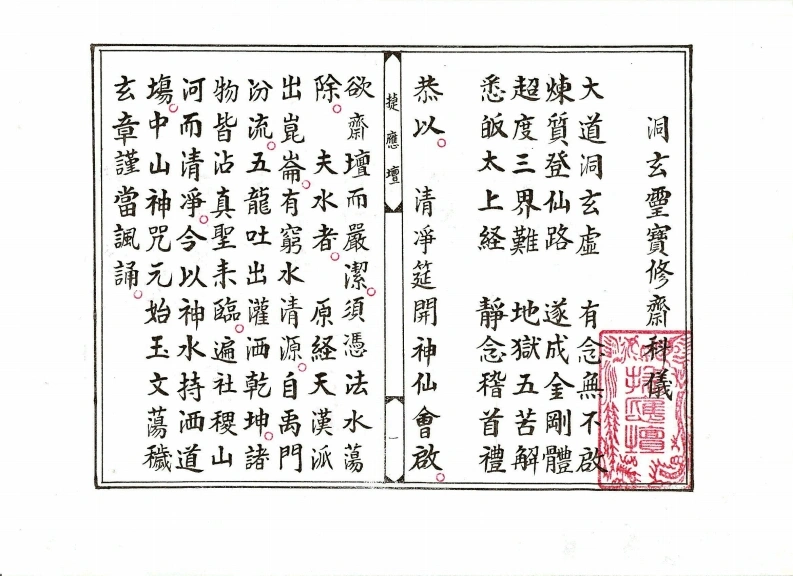 洞玄靈寶修齋科儀
大道洞玄虛　有念無不啟
煉質登仙路　遂成金剛體
超度三界難　地獄五苦解
悉皈太上経　靜念稽首禮
恭以。　清凈筵開神仙會啟。
捷應壇
一
欲齋壇而嚴潔。須憑法水蕩
除。　夫水者。　原経天漢派
出崑崙。有窮水清源。自禹門
汾流。五龍吐出灌洒乾坤。諸
物皆沾真聖未臨。遍社稷山
河而清凈。今以神水持洒道
場。中山神咒元始玉文蕩穢
玄章謹當諷誦。
捷應壇